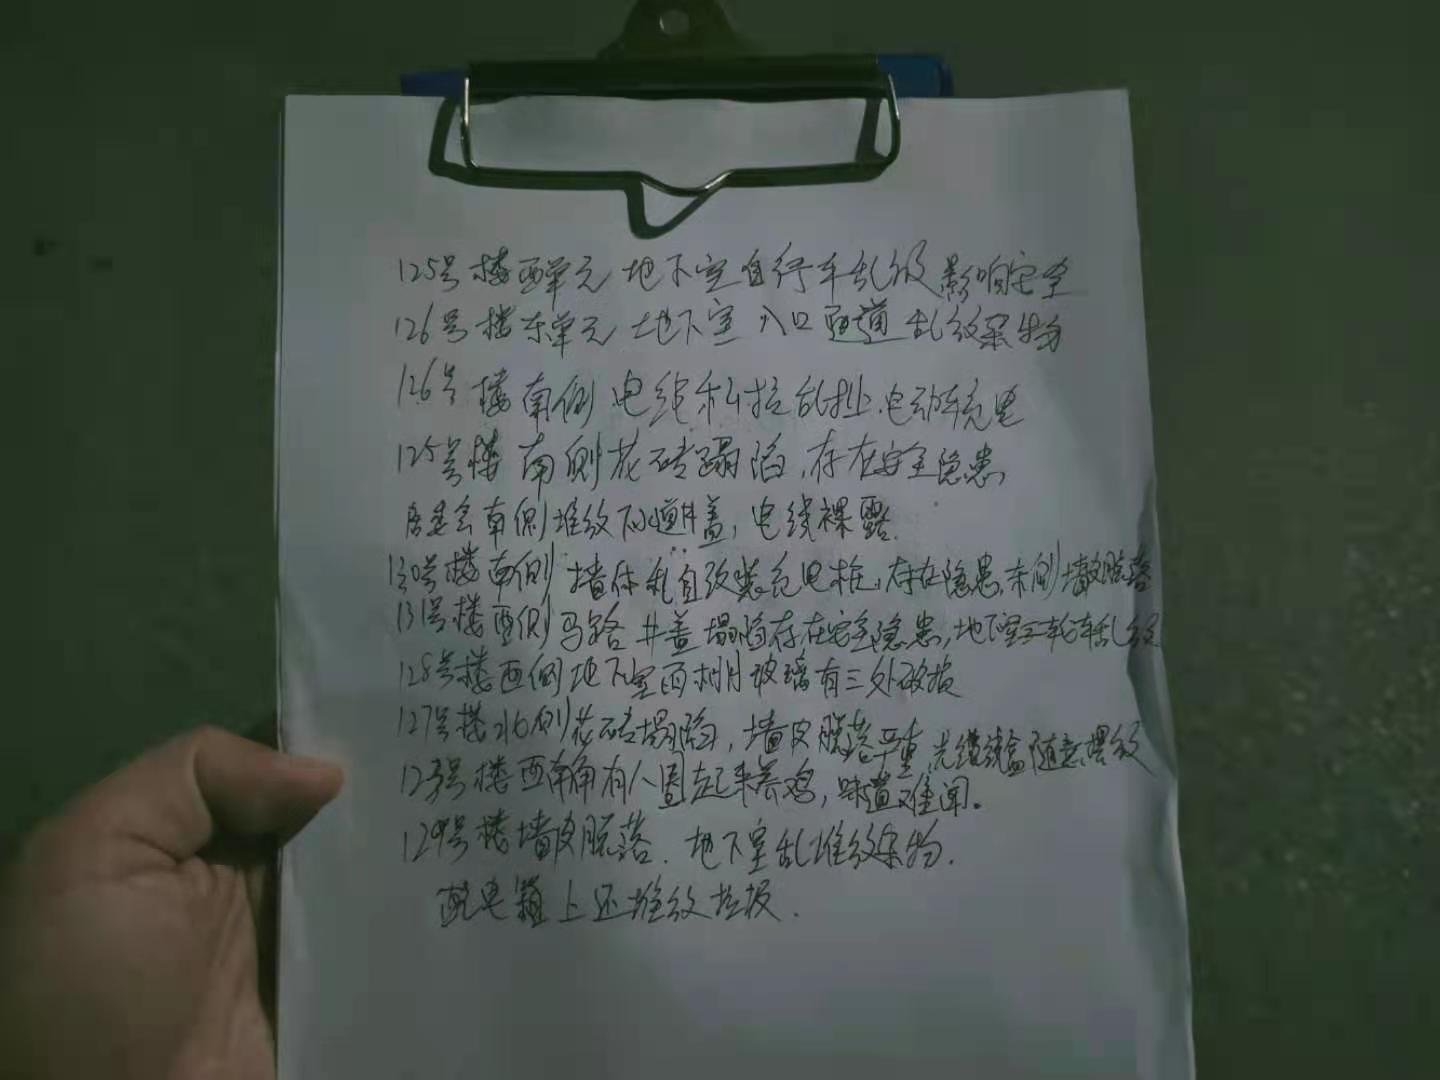 125号楼西单元地下室自行车乱放影响安全
126号楼东单元地下室入口通道乱放杂物
126号楼南侧电线私拉乱扯、电动车充电
125号楼南侧花砖蹋陷,存在安全隐患
居委会南侧堆放下水道井盖,电线裸露.
130号楼南侧墙体私自改装充电桩,存在隐患,东侧墙皮脱落
131号楼西侧马路井盖塌陷存在安全隐患,地下室三轮车乱放
128号楼西侧地下室雨棚玻璃有三处破损
127号楼北侧花砖塌陷,墙皮脱落严重,光缆线盒随意摆放
123号楼西南角有人圈起来养鸡,味道难闻。
129号楼墙皮脱落.地下室乱堆放杂物.
配电箱上还堆放垃圾.